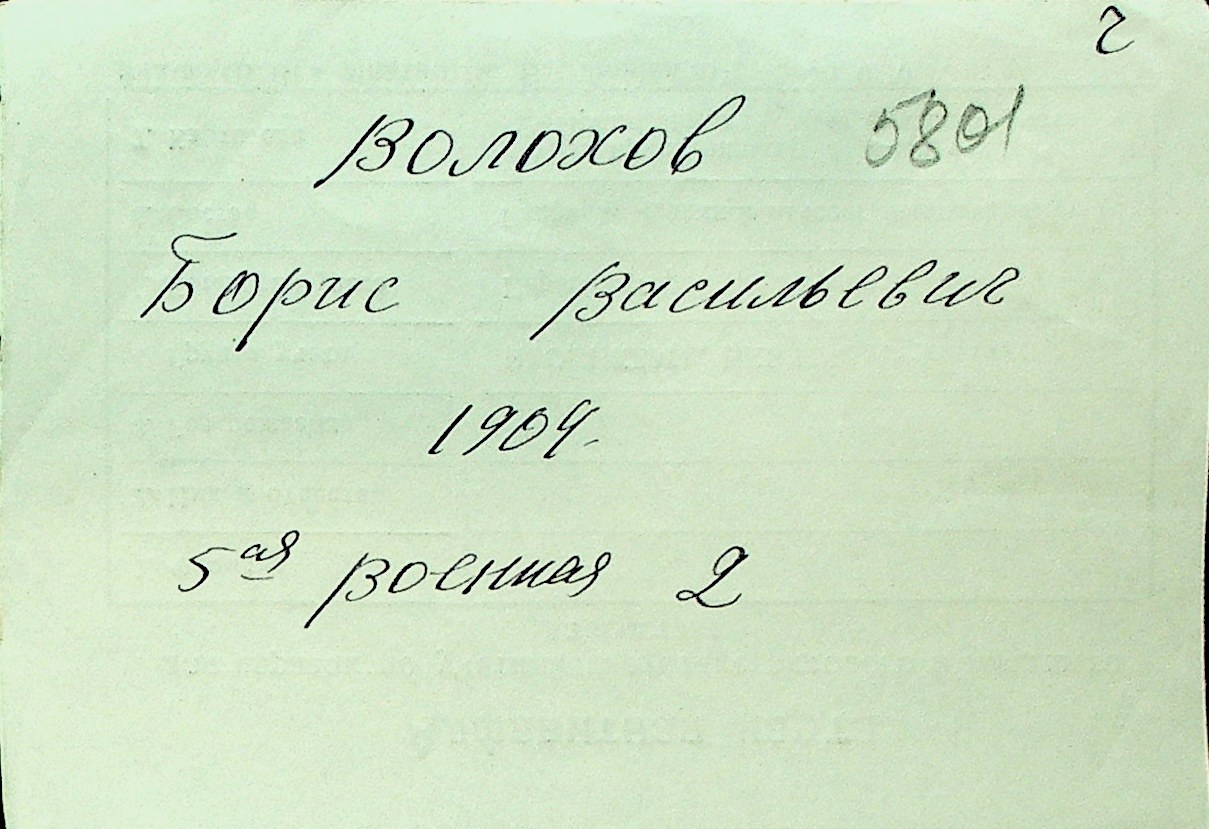 г
Волохов 5801
Борис Васильевич
1904.
5ая военная 2